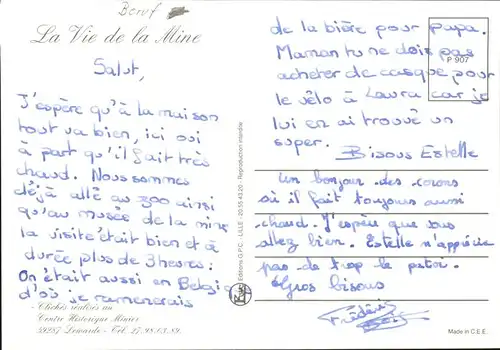 Bœuf
La Vie de la Mine
Salut,
J'espère qu'à la maison
tout va bien, ici oui
à part qu'il fait très
chaud. Nous sommes
déjà allé au 300 ainsi
qu'au musée de la mine
la visite était bien et à
durée plus de 3 heures:
On était aussi en Belgiq
d'où je ramenerais
Clichés réalisés au
Centre Historique Minier
59287 Lewarde - Tél. 27.98.03.89.
Editions G.P.C. - LILLE - 20.55.41.20 - Reproduction interdite
de la bière pour papa.
Maman tu ne dois pas
acheter de casque pour
le vélo à Laura car je
lui en ai trouvé un
super.
Bisous Estelle
P 907
Un bonjour des corons
où il fait toujours aussi
chaud. J'espère que vous
allez bien. Estelle n'apprécie
pas de trop le patoi.
Gros bisous
Frédéric
Made in C.E.E.